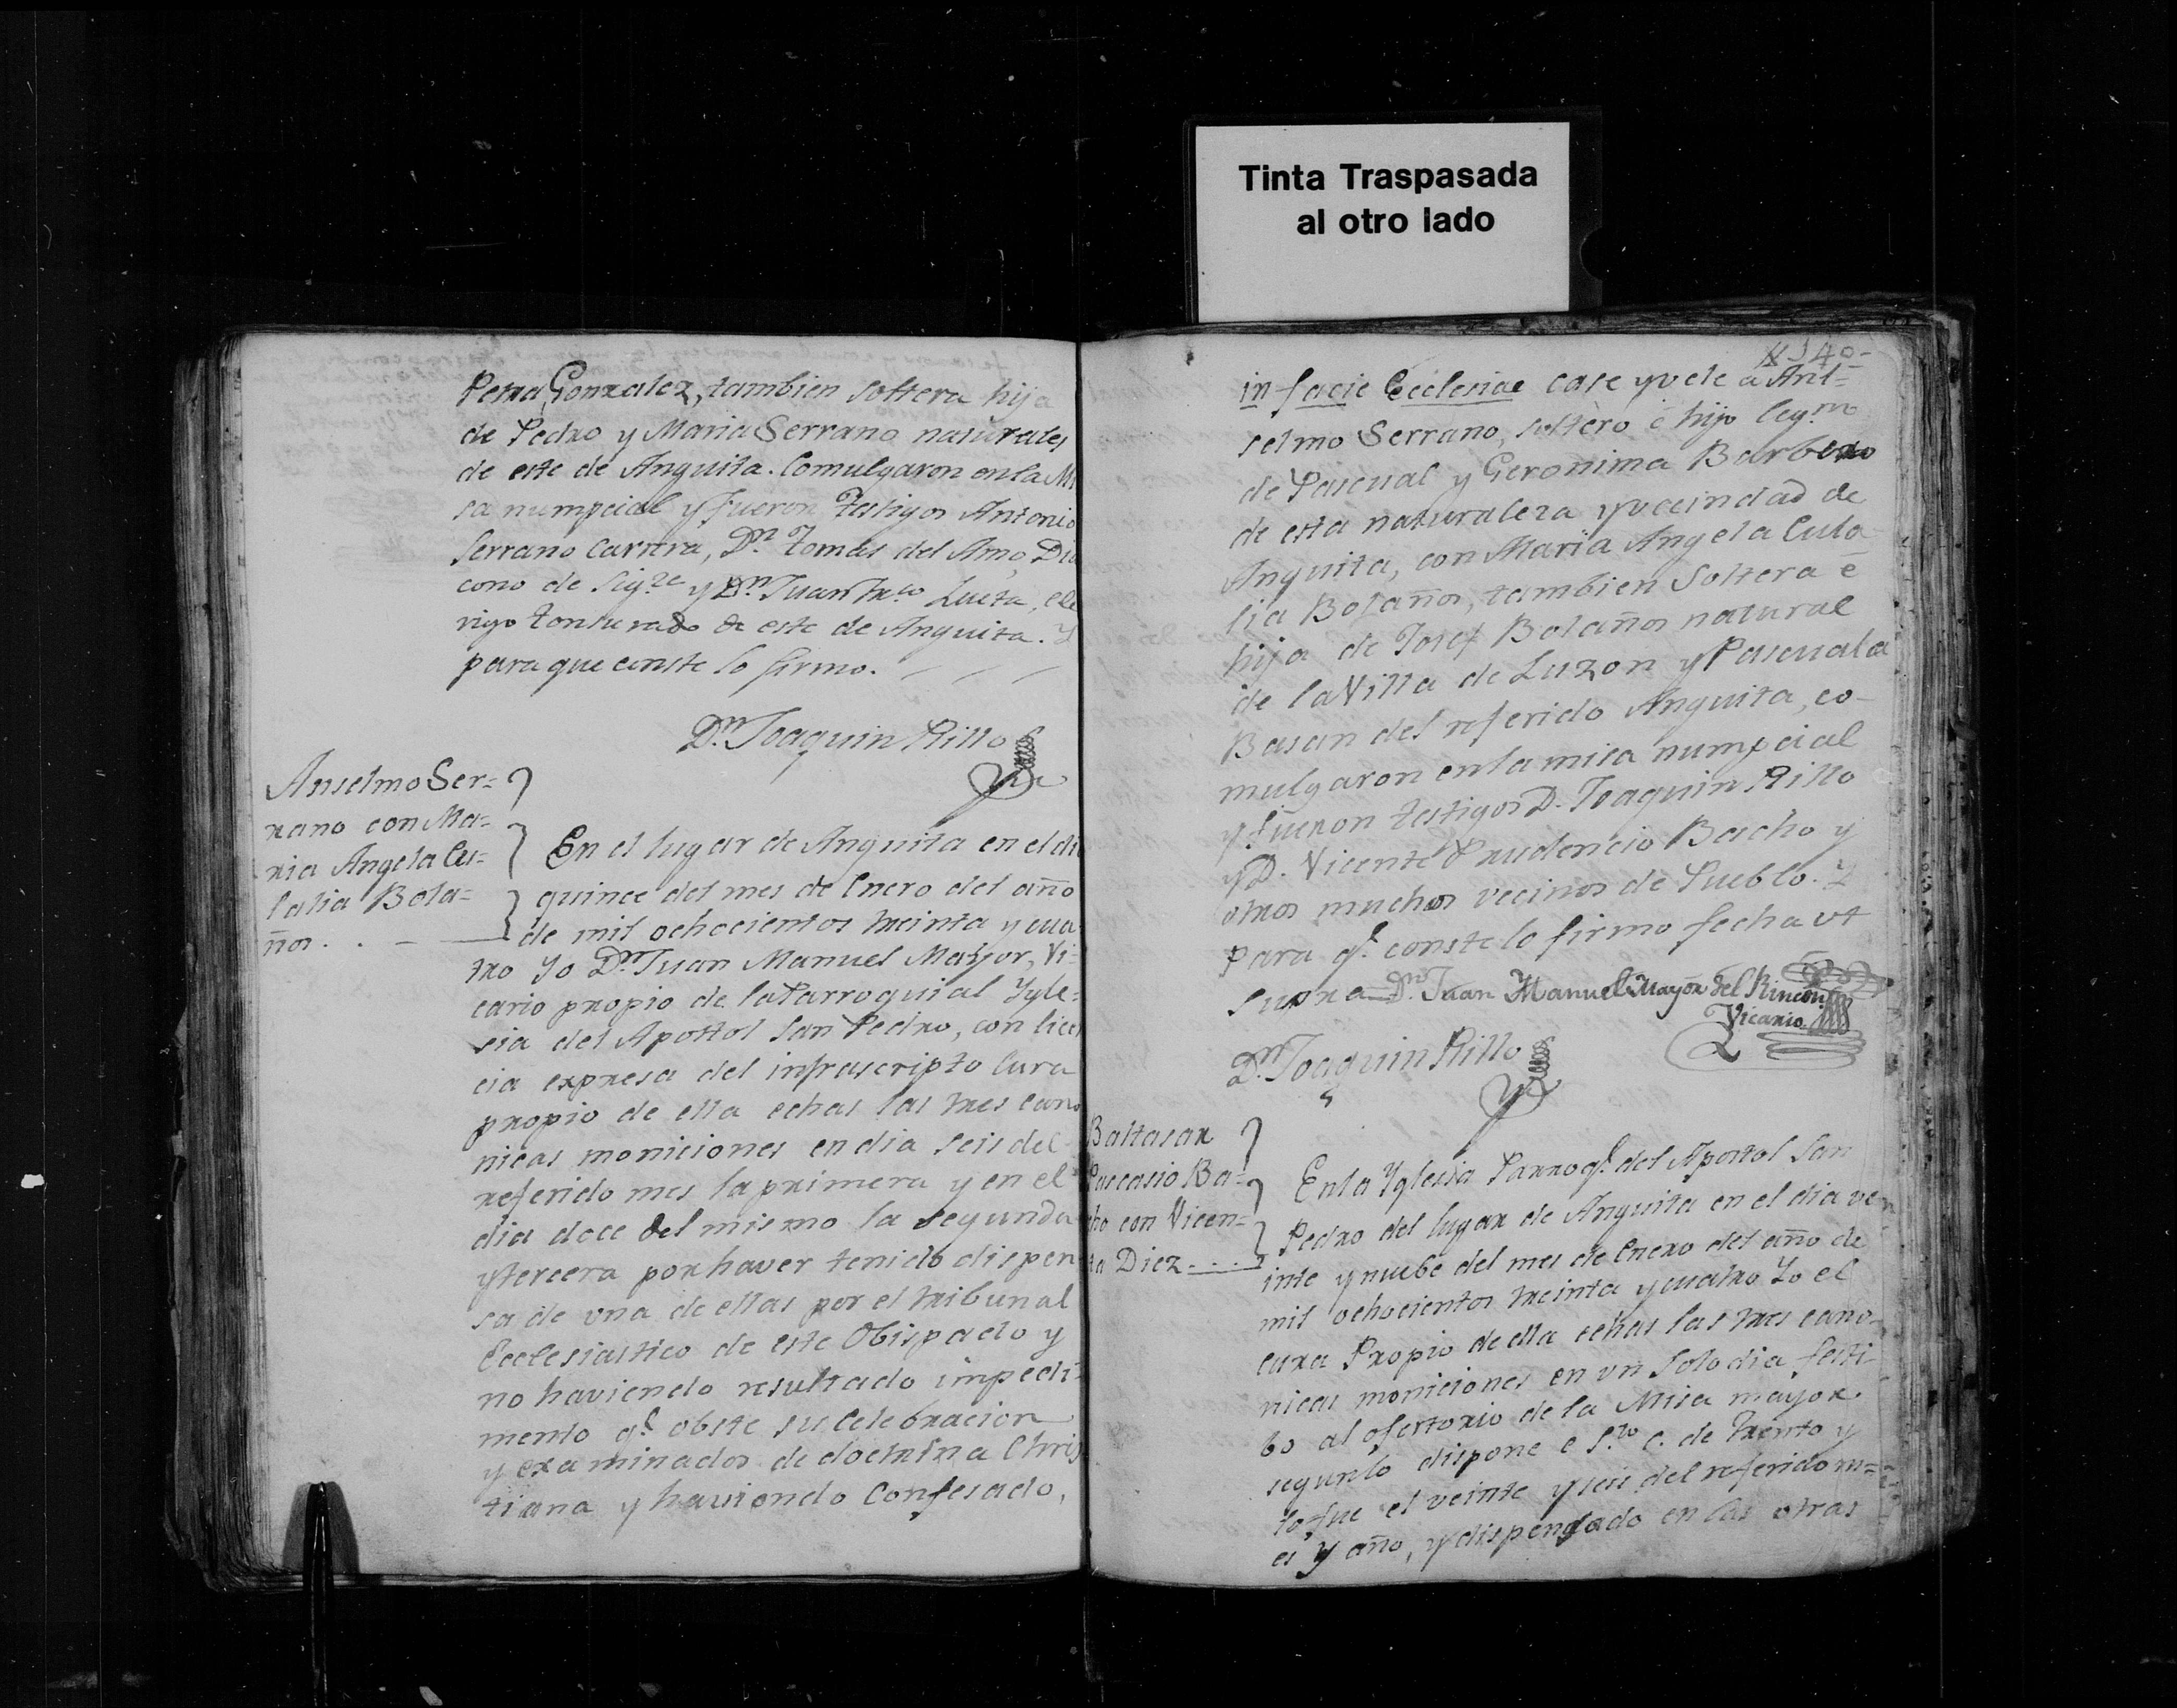 Tinta Traspasada
al otro lado
Petra Gonzalez, tambien soltera hija
de Pedro y Maria Serrano naturales
de este de Anguita. Comulgaron en la Mi
sa numpcial y fueron Testigos Antonio
Serrano Carrera, Dn. Tomas del Amo, Dia
cono de Sigza y Dn. Juan Lueta, Cle
rigo tonsurado de este de Anguita. Y
para que conste lo firmo.
Dn. Joaquin Rillo
Anselmo Ser=
rano con Ma=
ria Angela Cu=
lalia Bola=
ños
En el lugar de Anguita en el di
quince del mes de Enero del año
de mil ochocientos treinta y cua
tro Yo Dn. Juan Manuel Mayor, Vi=
cario propio de la Parroquial Ygle=
sia del Apostol San Pedro, con licen
cia expresa del infrascripto Cura
propio de ella echas las tres cano
nicas moniciones en dia seis del
referido mes la primera y en el
dia doce del mismo la segunda
y tercera por haver tenido dispen
sa de una de ellas por el tribunal
Ecclesiastico de este Obispado y
no haviendo resultado impedi=
mento qe. obste su celebracion
y examinados de doctrina Chris
tiana y haviendo Confesado,
140-
in facie Ecclesiae case y vele a An=
selmo Serrano, soltero é hijo legmo
de Pascual y Geronima Barbero
de esta naturaleza y vecindad de
Anguita, con Maria Angela Cula
lia Bolaños, tambien Soltera é
hija de Josef Bolaños natural
de la Villa de Luzon y Pascuala
Basan del referido Anguita, co-
mulgaron en la misa numpcial
y fueron testigos D. Joaquin Rillo
y D. Vicente Prudencio Bacho y
otros muchos vecinos de Pueblo. Y
para qe. conste lo firmo fecha ut
supra Dn. Juan Manuel Mayor del Rincon
Vicario
Dn. Joaquin Rillo
Baltasar
Pascasio Ba=
cho con Vicen=
ta Diez
En la Yglesia Parroql. del Apostol San
Pedro del lugar de Anguita en el dia ve
inte y nuebe del mes de Enero del año de
mil ochocientos treinta y cuatro Yo el
cura Propio de ella echas las tres cano-
nicas moniciones en un solo dia festi-
bo al ofertorio de la Misa mayor
segun lo dispone e Sto. C. de Trento y
lo fue el veinte y seis del referido m=
es y año, y dispensado en las otras